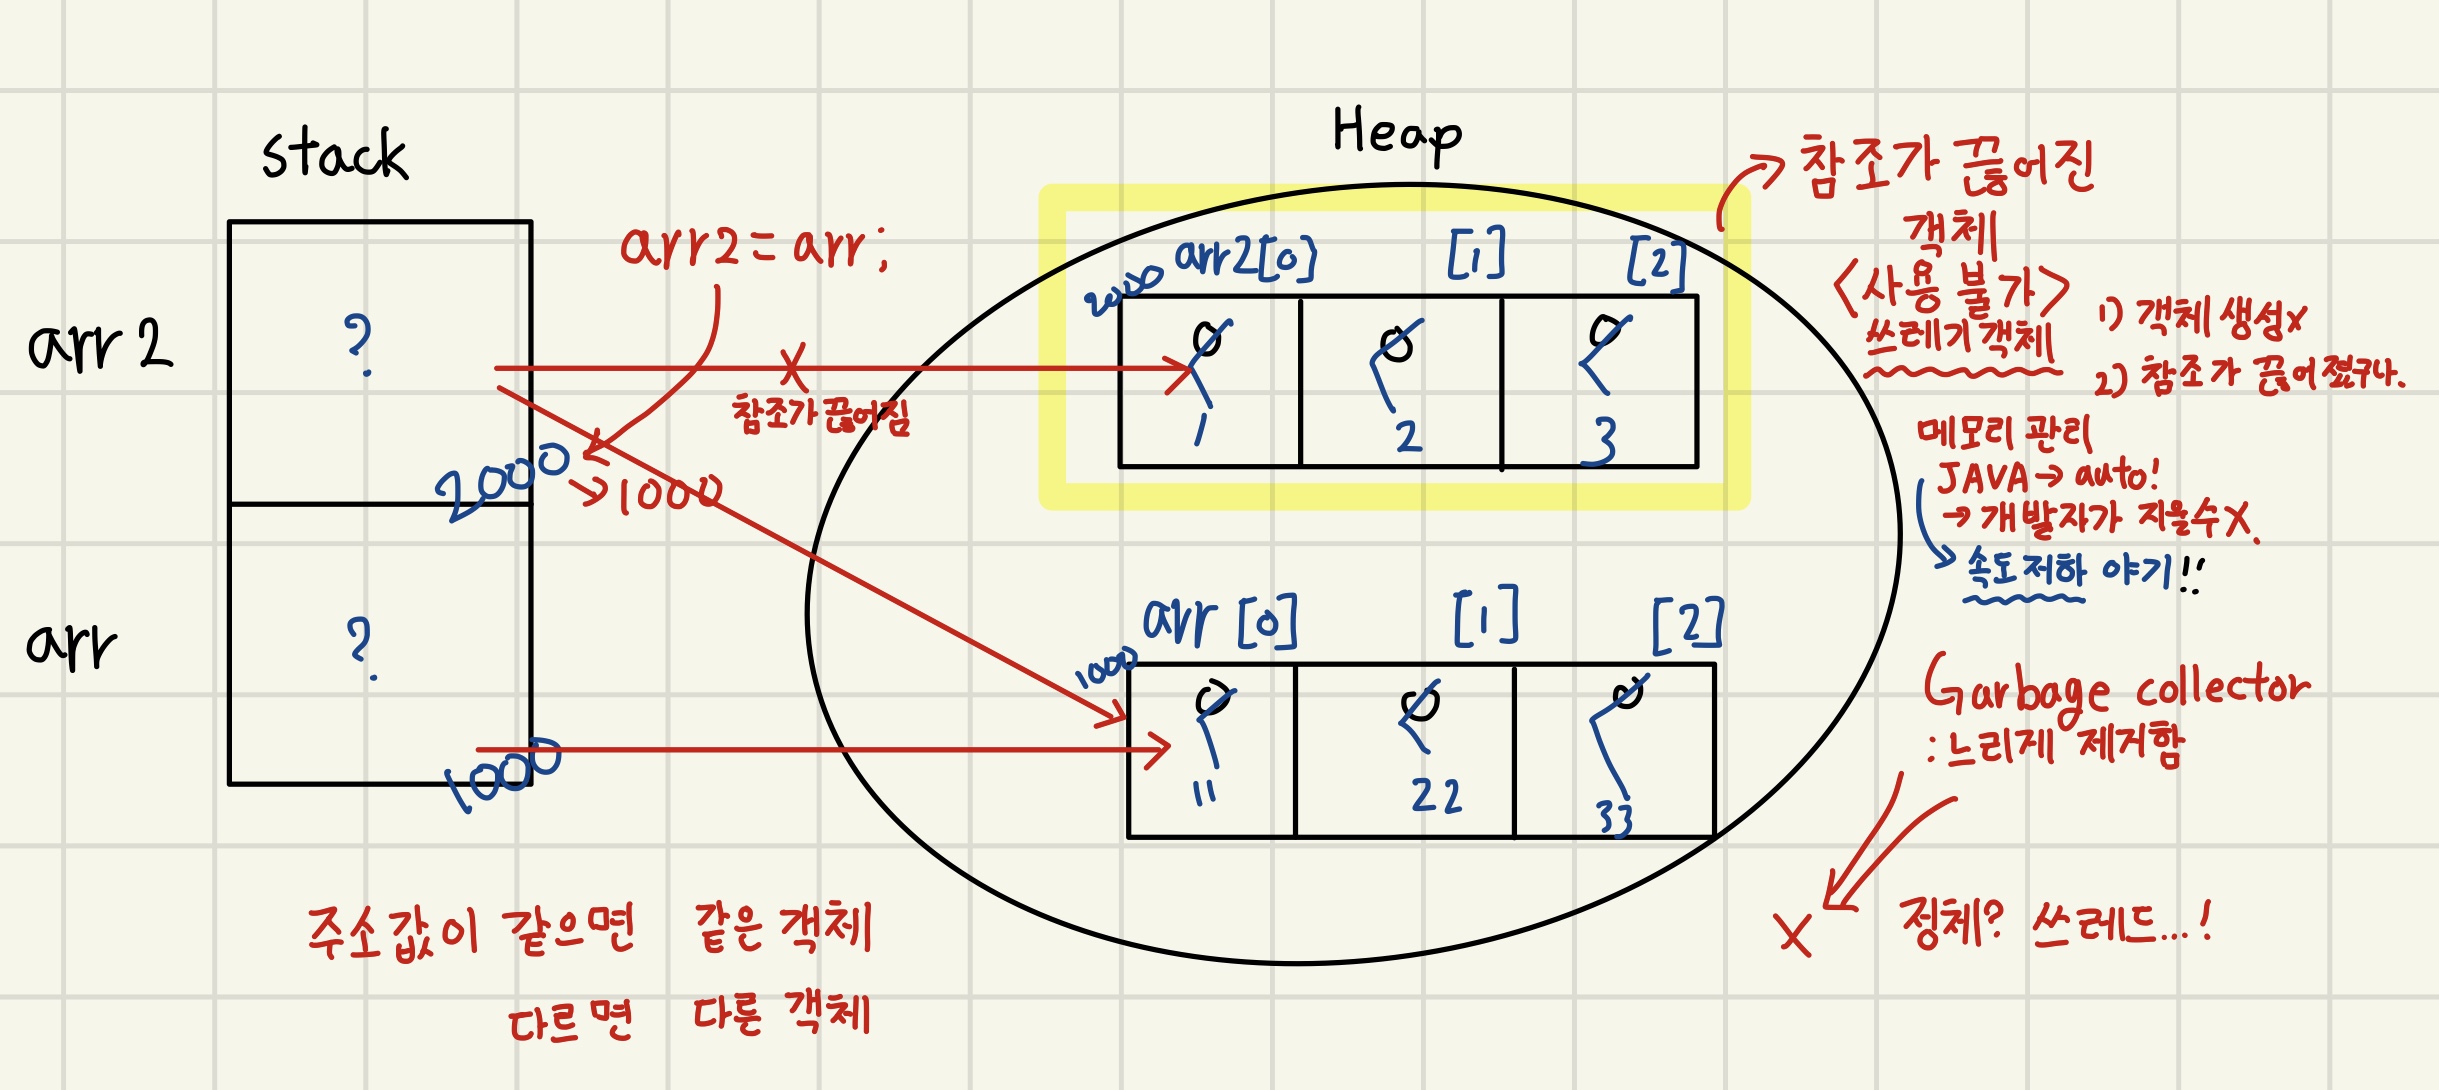 stack
Heap
arr2 = arr;
arr 2
?
2000
→1000
참조가 끊어짐
X
arr
?
1000
2000
arr2[0] [1] [2]
0 0 0
1 2 3
1000
arr [0] [1] [2]
0 0 0
11 22 33
참조가 끊어진
객체
<사용 불가>
쓰레기 객체
1) 객체 생성x
2) 참조가 끊어졌구나.
메모리 관리
JAVA → auto!
→ 개발자가 지울수X.
속도 저하 야기!!
Garbage collector
: 느리게 제거함
X
정체? 쓰레드...!
주소값이 같으면 같은 객체
다르면 다른 객체